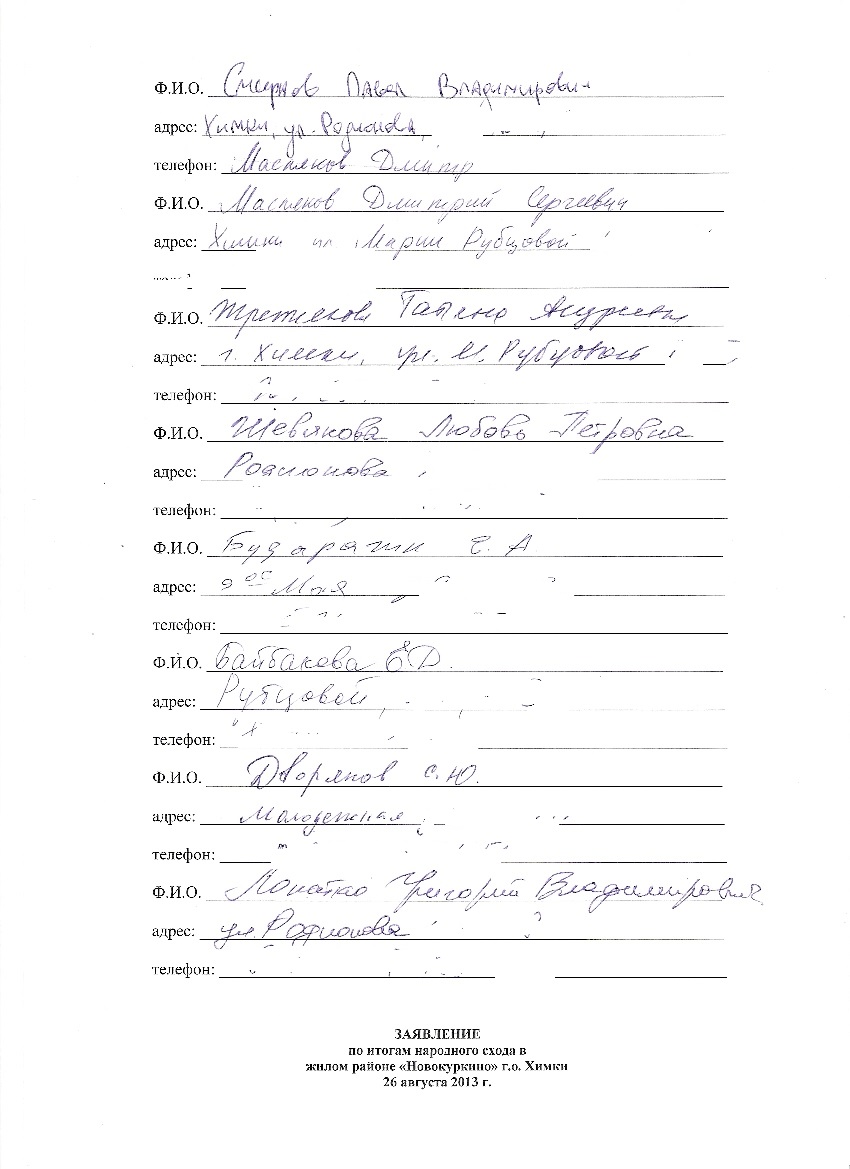 Ф.И.О. Смирнов Павел Владимирович
адрес: Химки, ул. Родионова,
телефон: Масляков Дмитр
Ф.И.О. Масляков Дмитрий Сергеевич
адрес: Химки ул. Марии Рубцовой
Ф.И.О. Третьякова Татьяна Андреевна
адрес: г. Химки, ул. М. Рубцовой
телефон:
Ф.И.О. Шевякова Любовь Петровна
адрес: Родионова
телефон:
Ф.И.О. Бударагин Г. А
адрес: 9 ое Мая
телефон:
Ф.И.О. Байбакова Е.Д.
адрес: Рубцовой,
телефон:
Ф.И.О. Дворянов С.Ю.
адрес: Молодежная
телефон:
Ф.И.О. Лопатко Григорий Владимирович
адрес: ул. Родионова
телефон:
ЗАЯВЛЕНИЕ
по итогам народного схода в
жилом районе «Новокуркино» г.о. Химки
26 августа 2013 г.